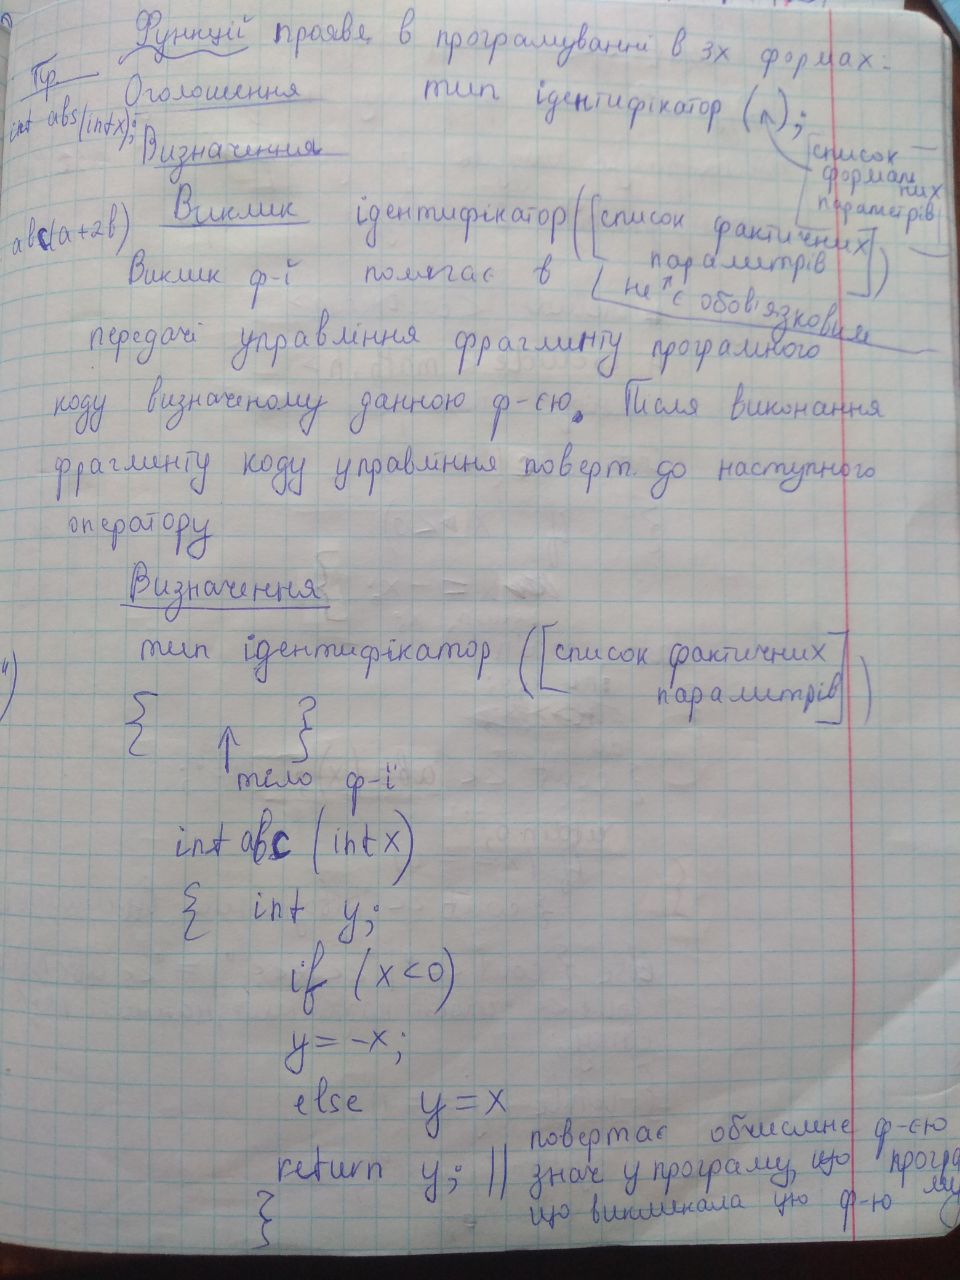 Функції прояве в програмуванні в 3х формах:
Пр.
Оголошення тип ідентифікатор ( );
int abs(int x);
список формал них параметрів
Визначення
Виклик ідентифікатор([список фактичних параметрів])
abc(a+2b)
не є обов'язковим
Виклик ф-ї полягає в
передачі управління фрагминту програмного
коду визначеному данною ф-єю. Після виконання
фрагминту коду управління поверт. до наступного
оператору
Визначення
тип ідентифікатор ([список фактичних
параметрів])
{ }
тіло ф-ї
int abc (int x)
{ int y;
if (x<0)
y = -x;
else y = x
return y; // повертає обчислине ф-єю
знач у програму, що програ
що викликала цю ф-ю му
}